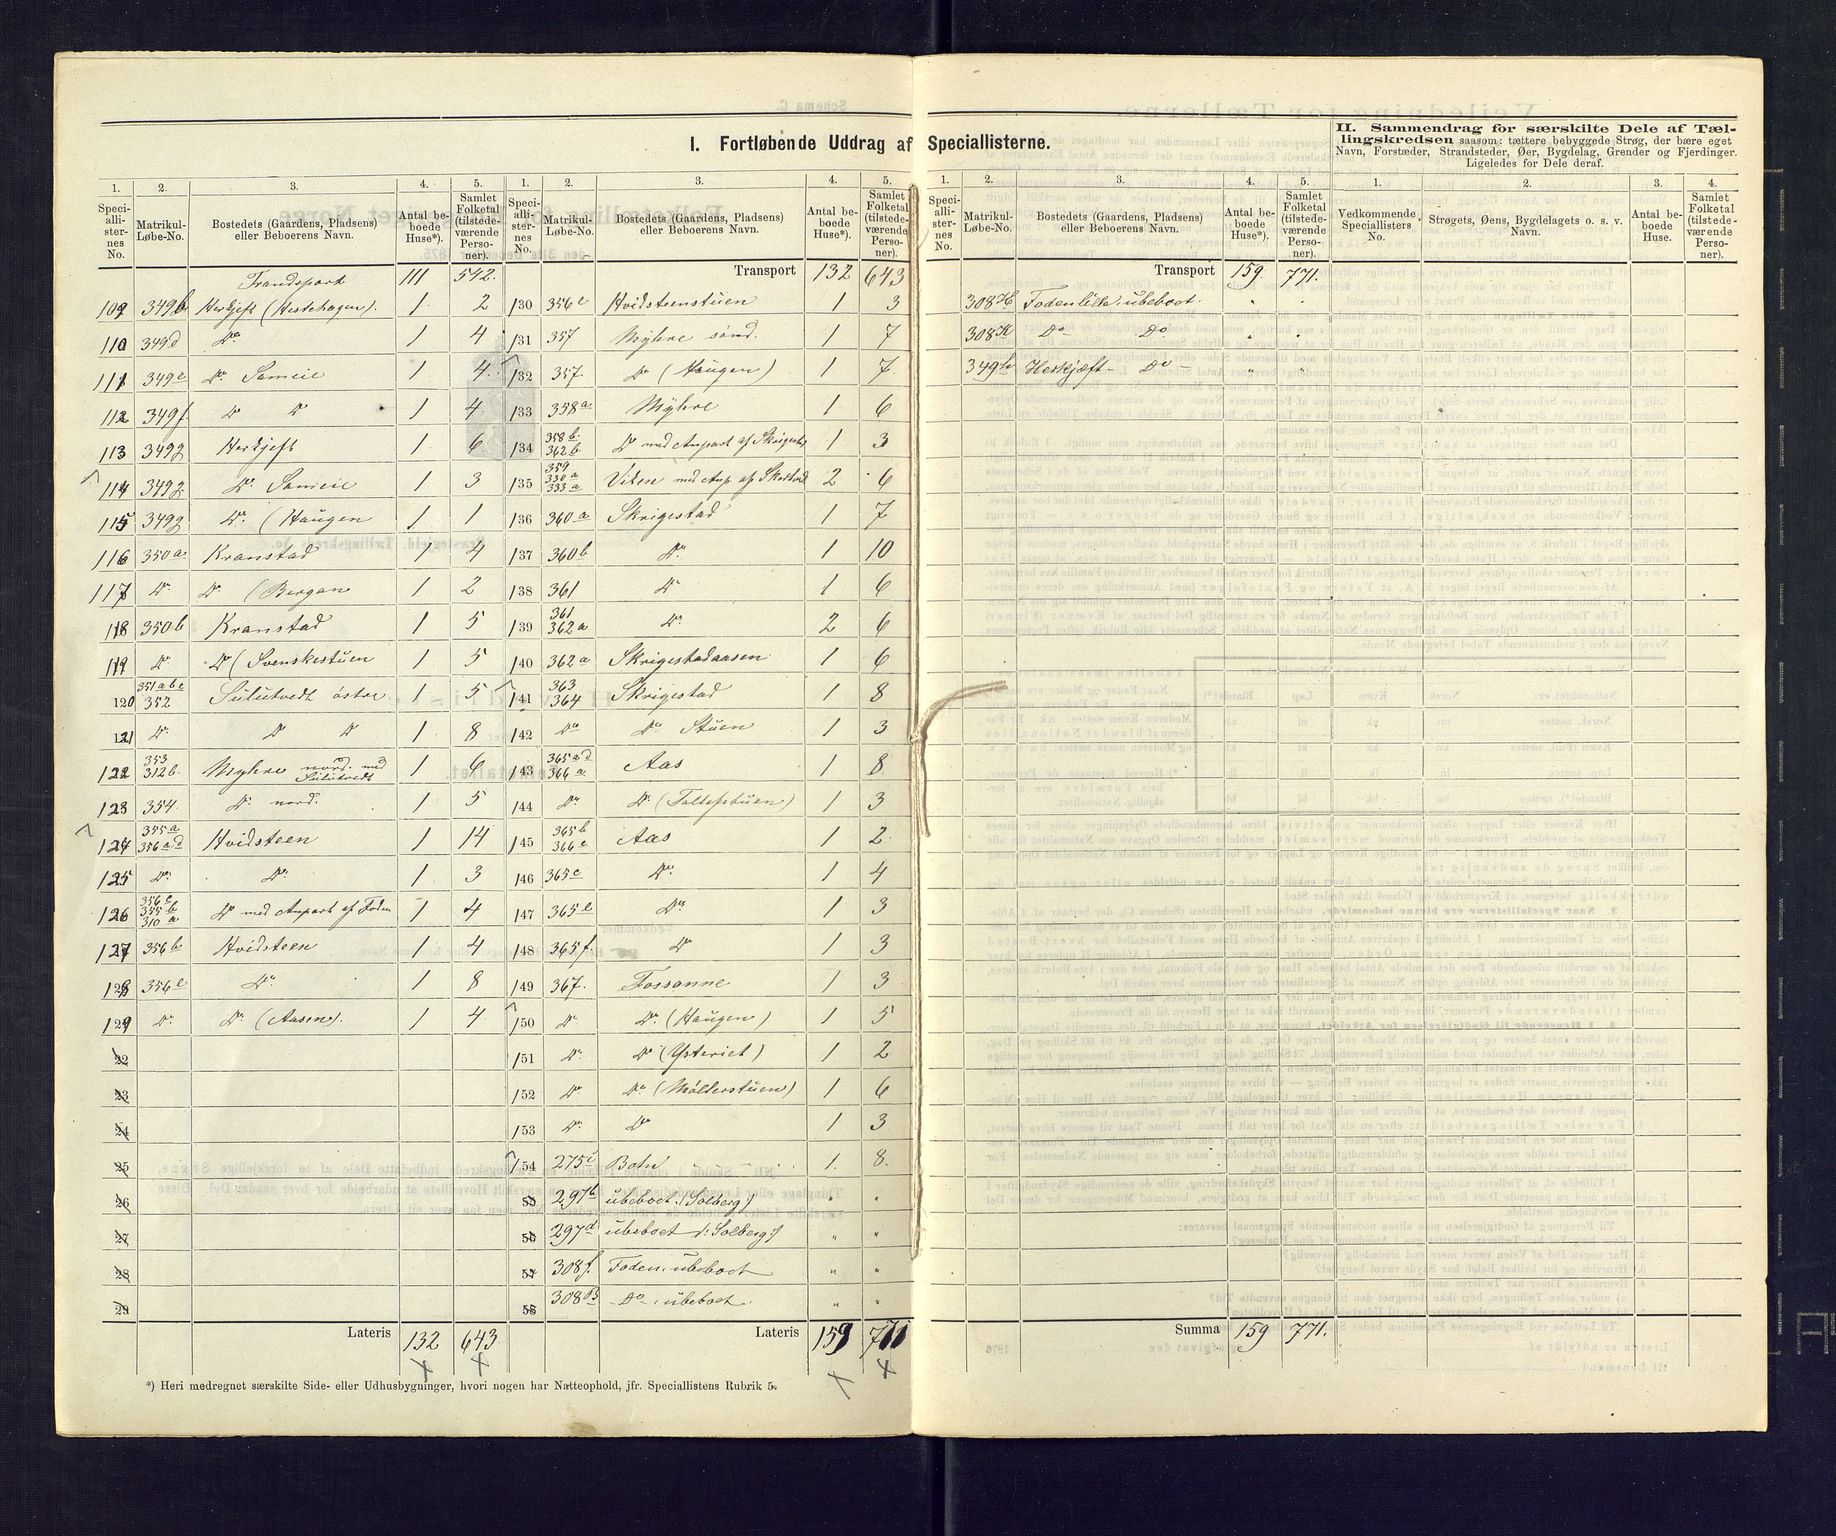 I. Fortløbende Uddrag af Speciallisterne.
II. Sammendrag for særskilte Dele af Tællingskredsen saasom: tættere bebyggede Strøg, der bære eget
Navn, Forstæder, Strandsteder, Øer, Bygdelag, Grender og Fjerdinger.
Ligeledes for Dele deraf.
1. 2. 3. 4. 5.
Speciallisternes No. Matrikul-Løbe-No. Bostedets (Gaardens, Pladsens) eller Beboerens Navn. Antal beboede Huse*). Samlet Folketal (tilstedeværende Personer).
Transport 111 542.
109 349b Herkjeft (Hestehagen). 1 2
110 349d Do 1 4
111 349e Do Sameie 1 4
112 349f Do Do 1 4
113 349g Herkjeft 1 6
114 349g Do Sameie 1 3
115 349g Do (Haugen 1 1
116 350a Kranstad 1 4
117 Do Do (Bergan 1 2
118 350b Kranstad 1 5
119 Do Do (Svenskestuen 1 5
120 351abc 352 Sulutvedt østre 1 5
121 Do Do Do 1 8
122 353 312b. Myhre nord. med Sulutvedt 1 6
123 354 Do nord. 1 5
124 355a 356ad Hvidsteen 1 14
125 Do Do 1 3
126 356c 355b 310a Do med Anpart af Foden 1 4
127 356b Hvidsteen 1 4
128 356e Do 1 8
129 Do Do (Aasen). 1 4
22
23
24
25
26
27
28
29
Lateris 132 643
1. 2. 3. 4. 5.
Speciallisternes No. Matrikul-Løbe-No. Bostedets (Gaardens, Pladsens) eller Beboerens Navn. Antal beboede Huse*). Samlet Folketal (tilstedeværende Personer).
Transport 132 643
130 356e Hvidsteenstuen 1 3
131 357 Myhre sønd. 1 7
132 357. Do (Haugen) 1 7
133 358a Myhre 1 6
134 358b. 362b Do med Anpart af Skrigestad 1 3
135 359 330a 333a Viken med Anp. af 2 6
136 360a Skrigestad 1 7
137 360b Do 1 10
138 361 Do 1 6
139 361 362a Do 2 6
140 362a Skrigestadaasen 1 6
141 363 364 Skrigestad 1 8
142 Do Do Stuen 1 3
143 365ad 366a Aas 1 8
144 Do Do (Tollefstuen) 1 3
145 365b 366c Aas 1 2
146 365c Do 1 4
147 365e Do 1 3
148 365f Do 1 3
149 367. Fossanne 1 3
150 Do Do (Haugen) 1 5
151 Do Do (Ysteriet) 1 2
152 Do Do (Møllerstuen) 1 6
153 Do Do 1 3
154 275i Botn 1. 8.
55 297b ubeboet. (Solberg) " "
56 297d ubeboet (Solberg) " "
57 308f. Foden. ubeboet " "
58 308B Do. ubeboet. " "
Lateris 159 771
1. 2. 3. 4. 5.
Speciallisternes No. Matrikul-Løbe-No. Bostedets (Gaardens, Pladsens) eller Beboerens Navn. Antal beboede Huse*). Samlet Folketal (tilstedeværende Personer).
Transport 159 771.
308H Fodenlille ubeboet. " "
308K Do Do " "
349h Herkjæft - Do - " "
Summa 159 771.
1. 2. 3. 4.
Vedkommende Speciallisters No. Strøgets, Øens, Bygdelagets o. s. v. Navn. Antal beboede Huse. Samlet Folketal (tilstedeværende Personer).
*) Heri medregnet særskilte Side- eller Udhusbygninger, hvori nogen har Natteophold, jfr. Speciallistens Rubrik 5.